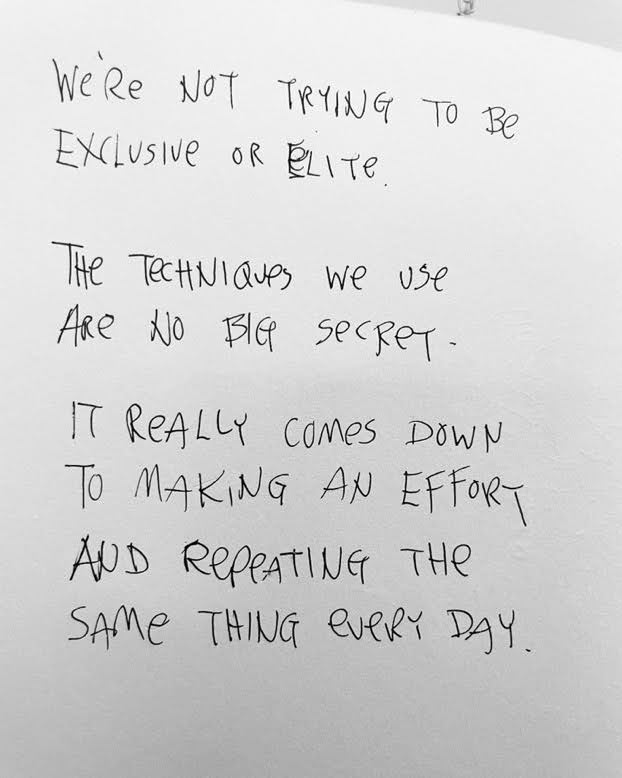 We'Re NOT TRYING TO Be
EXCLUSIVe OR ELITe.
THe TeCHNIQUes we use
ARe NO BIG seCReT.
IT ReALLY COMes DOWN
TO MAKING AN EFFORT
AND RePeATING THe
SAMe THING eveRY DAY.